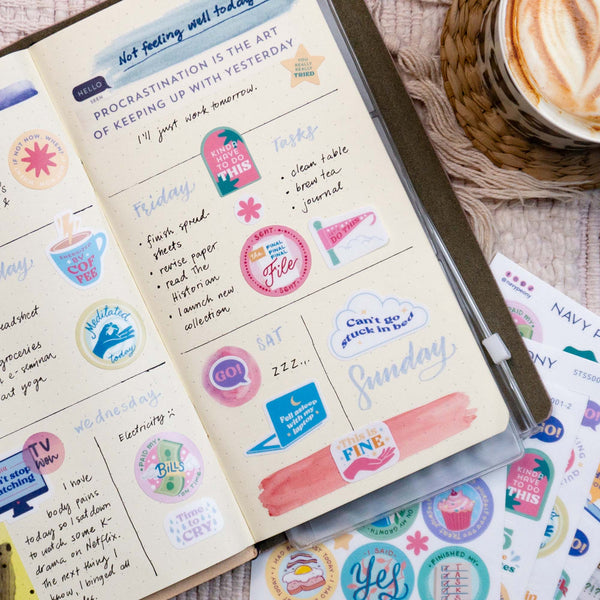 Not feeling well today
HELLO
PROCRASTINATION IS THE ART
OF KEEPING UP WITH YESTERDAY
YOU
REALLY
REALLY
TRIED
I'll just work tomorrow.
KINDA
HAVE
TO DO
THIS
Tasks
• clean table
• brew tea
• journal
Friday
• finish spread-
sheets
• revise paper
• read the
Historian
• launch new
collection
SENT
the FINAL
FINAL
FINAL
File
SENT
DO THIS
SAT
zzz...
GO!
Fell asleep
with my
laptop
Can't go
stuck in bed
Sunday
This is
FINE
IF NOT NOW, WHEN
&
day
POWERED
BY
COF
FEE
Meditated
today
eadsheet
groceries
e-seminar
art yoga
wednesday
TV
now
n't stop
watching
I have
body pains
today so I sat down
to watch some K-
drama on Netflix.
the next thing I
know, I binged all
Electricity
PAID MY
BILLS
ON TIME
Time
to
CRY
PAID MY
NAVY P
ONY
GO!
KINDA
HAVE
TO DO
THIS
I SAID
Yes
I FINISHED MY
TASK